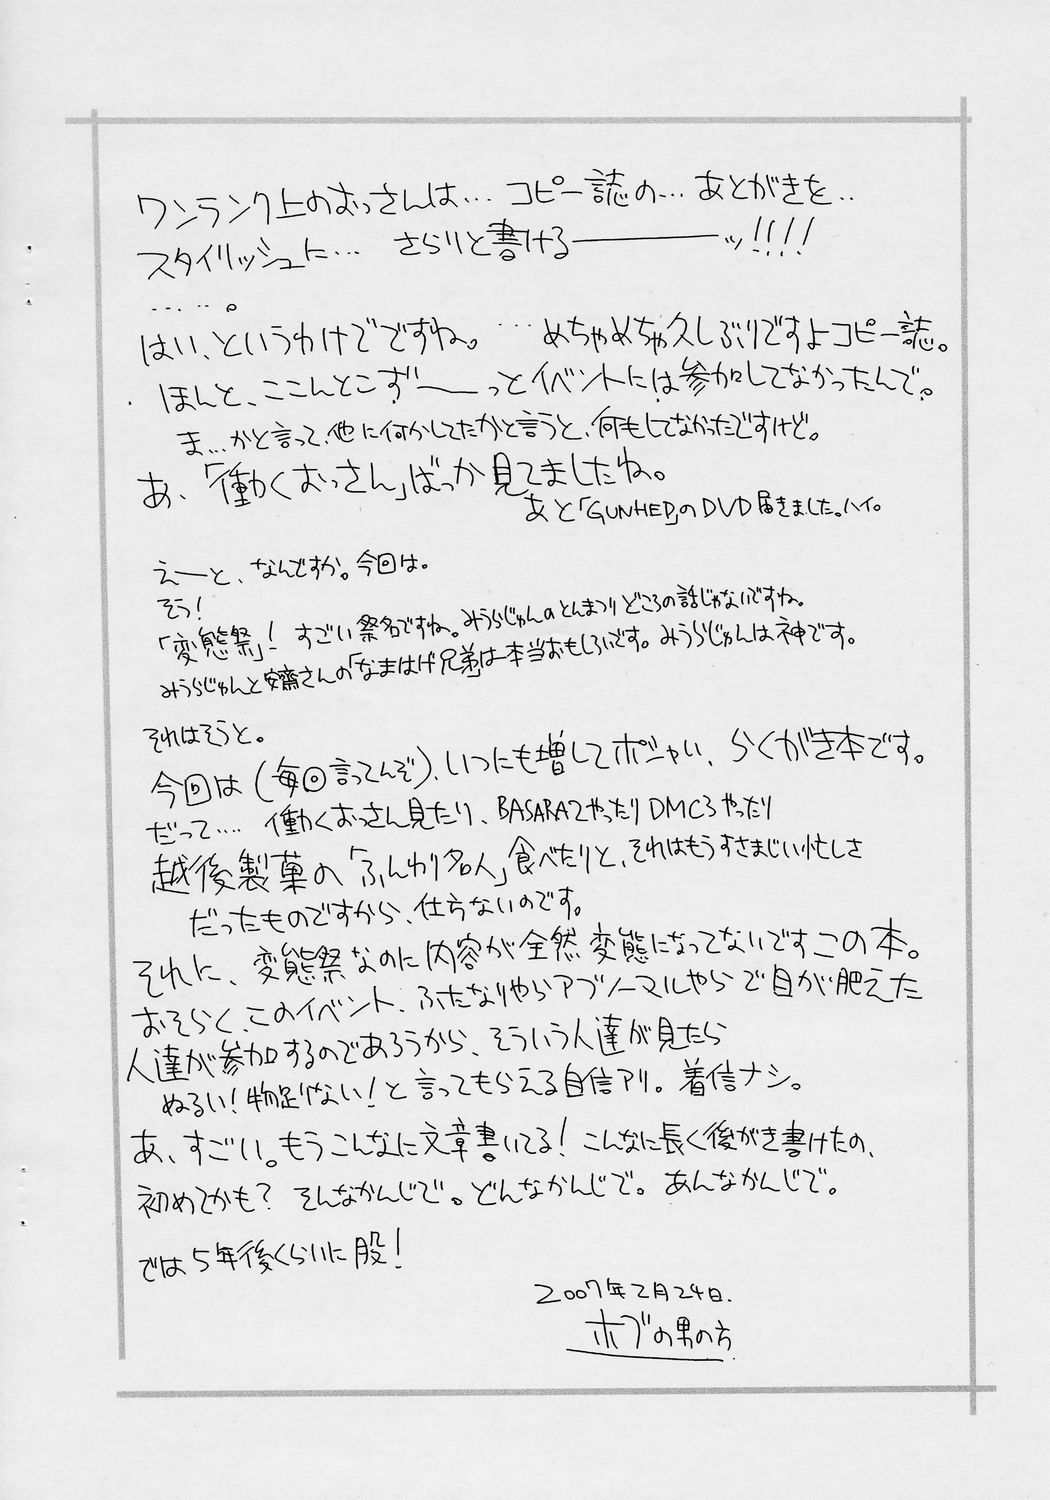 ワンランク上のおっさんは… コピー誌の… あとがきを‥
スタイリッシュに… さらりと書ける―――――ッ!!!!
……。
はい、というわけでですね。 …めちゃめちゃ久しぶりですよコピー誌。
ほんと、ここんとこず――っとイベントには参加してなかったんで。
ま…かと言って、他に何かしてたかと言うと、何もしてなかったですけど。
あ、「働くおっさん」ばっか見てましたね。
あと「GUNHED」のDVD届きました。ハイ。
えーと、なんですか。今回は。
そう!
「変態祭」! すごい祭名ですね。みうらじゅんのとんまつりどころの話じゃないですね。
みうらじゅんと安齋さんの「なまはげ兄弟」は本当おもしろいです。みうらじゅんは神です。
それはそうと。
今回は(毎回言ってんぞ)、いつにも増してポジャい、らくがき本です。
だって…. 働くおっさん見たり、BASARA2やったりDMC3やったり
越後製菓の「ふんわり名人」食べたりと、それはもうすさまじい忙しさ
だったものですから、仕方ないのです。
それに、変態祭なのに内容が全然変態になってないですこの本。
おそらく、このイベント、ふたなりやらアブノーマルやらで目が肥えた
人達が参加するのであろうから、そういう人達が見たら
ぬるい!物足りない!と言ってもらえる自信アリ。着信ナシ。
あ、すごい。もうこんなに文章書いてる! こんなに長く後がき書けたの、
初めてかも? そんなかんじで。どんなかんじで。あんなかんじで。
では5年後くらいに股!
2007年2月24日.
ホブの男の方